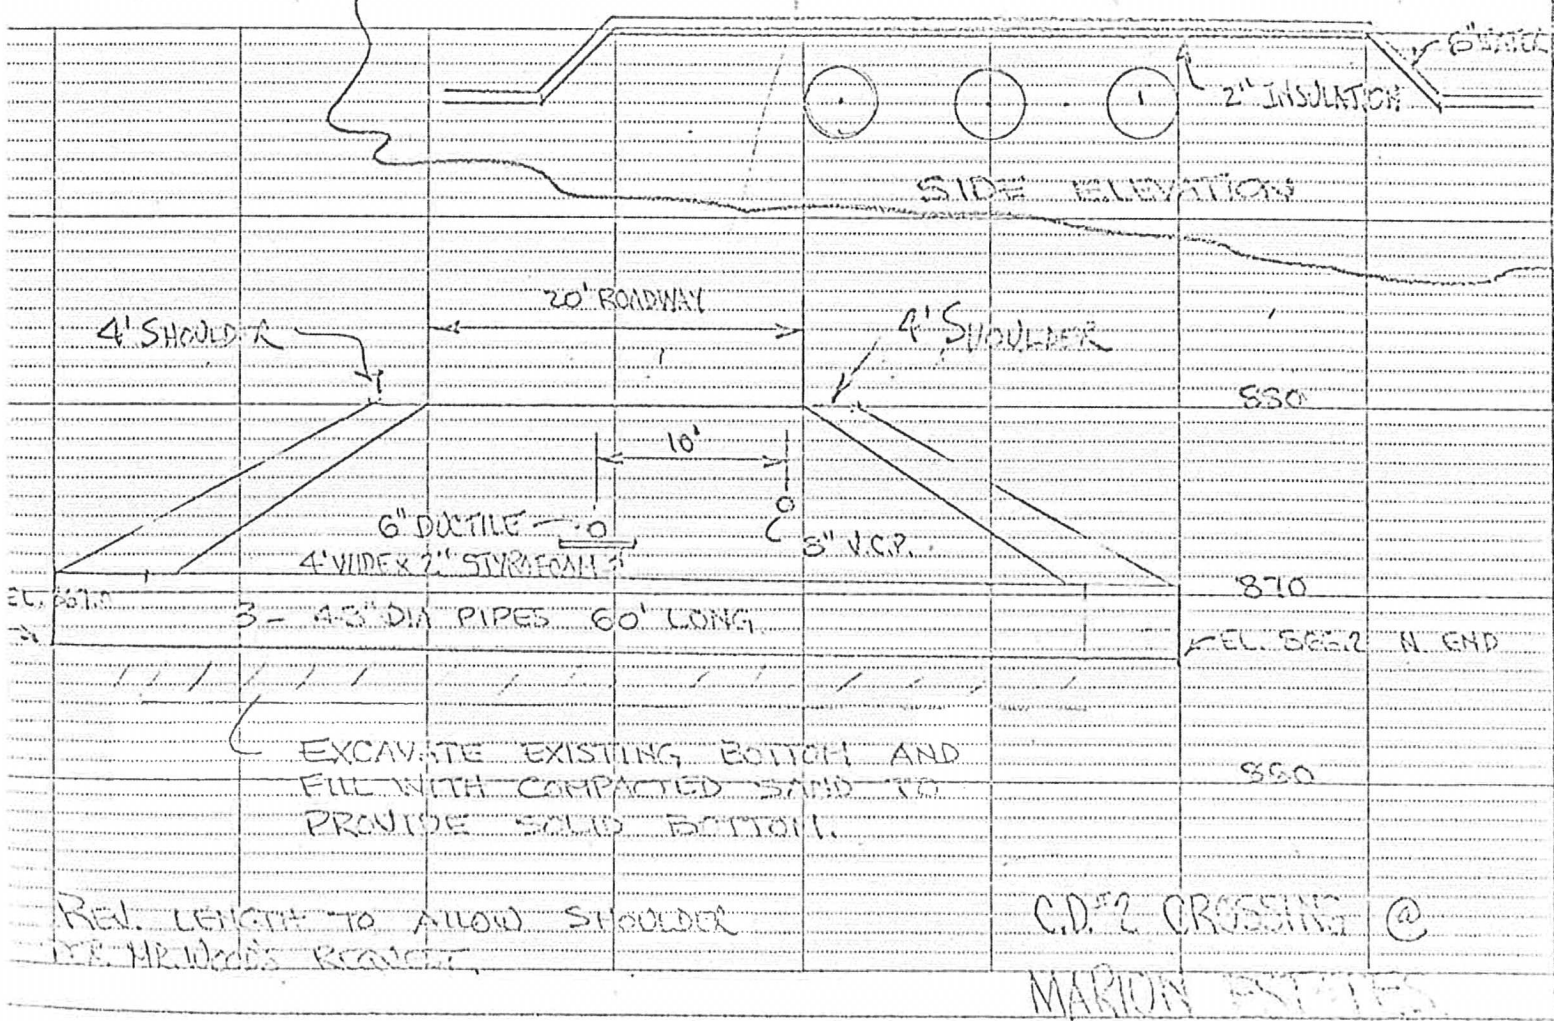 6" WATER
2" INSULATION
SIDE ELEVATION
20' ROADWAY
4' SHOULDER
4' SHOULDER
880
10'
6" DUCTILE
4' WIDE x 2" STYRAFOAM
8" V.C.P.
870
EL.
3- 48" DIA PIPES 60' LONG
EL. 866.2 N. END
EXCAVATE EXISTING BOTTOM AND
FILL WITH COMPACTED SAND TO
PROVIDE SOLID BOTTOM.
860
REV. LENGTH TO ALLOW SHOULDER
PER MR. WOOD'S REQUEST.
C.D. #2 CROSSING @
MARION ESTATES